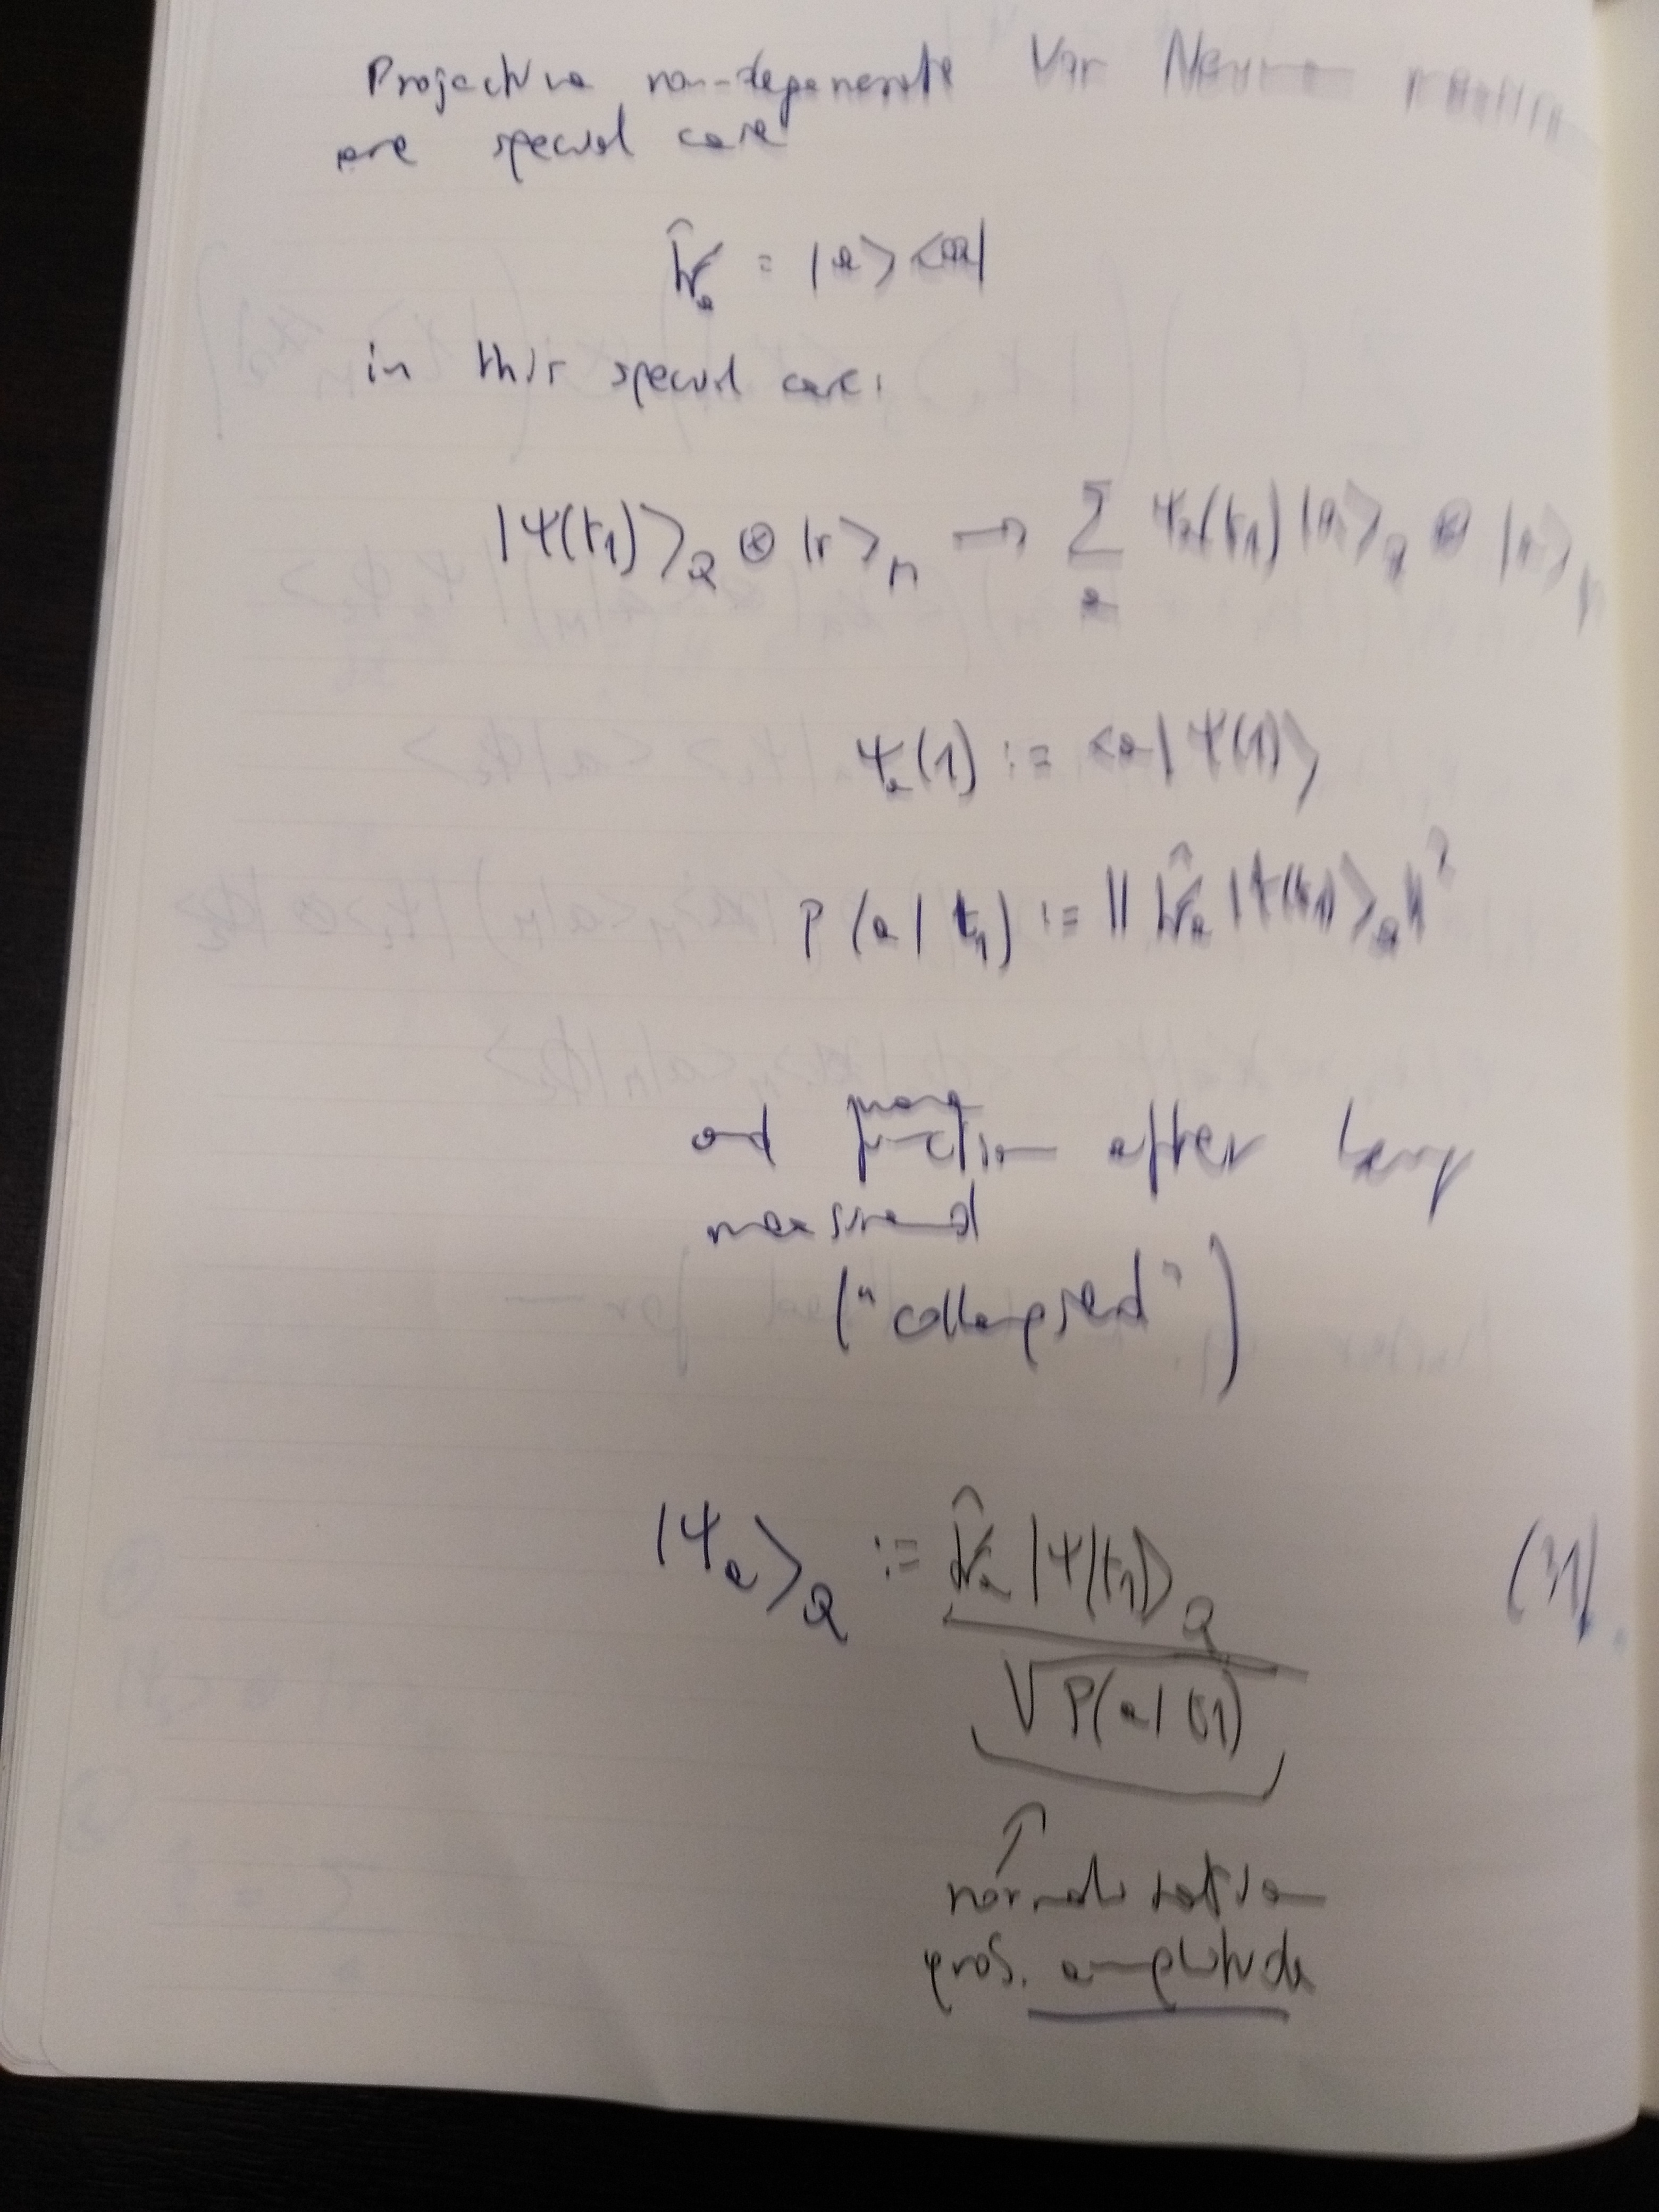 Projective non-degenerate Von Neu
are special case
Ŵₐ = |a> <a|
in this special case:
|Ψ(t₁)>_Q ⊗ |r>_M → Σₐ Ψₐ(t₁) |a>_Q ⊗ |a>_M
Ψₐ(1) := <a| Ψ(1)>
P(a | t₁) := || Ŵₐ |Ψ(t₁)>_Q ||²
and function after being
measured
("collapsed")
|Ψₐ>_Q := Ŵₐ |Ψ(t₁)>_Q (31).
√P(a | t1)
normalisation
prob. amplitude